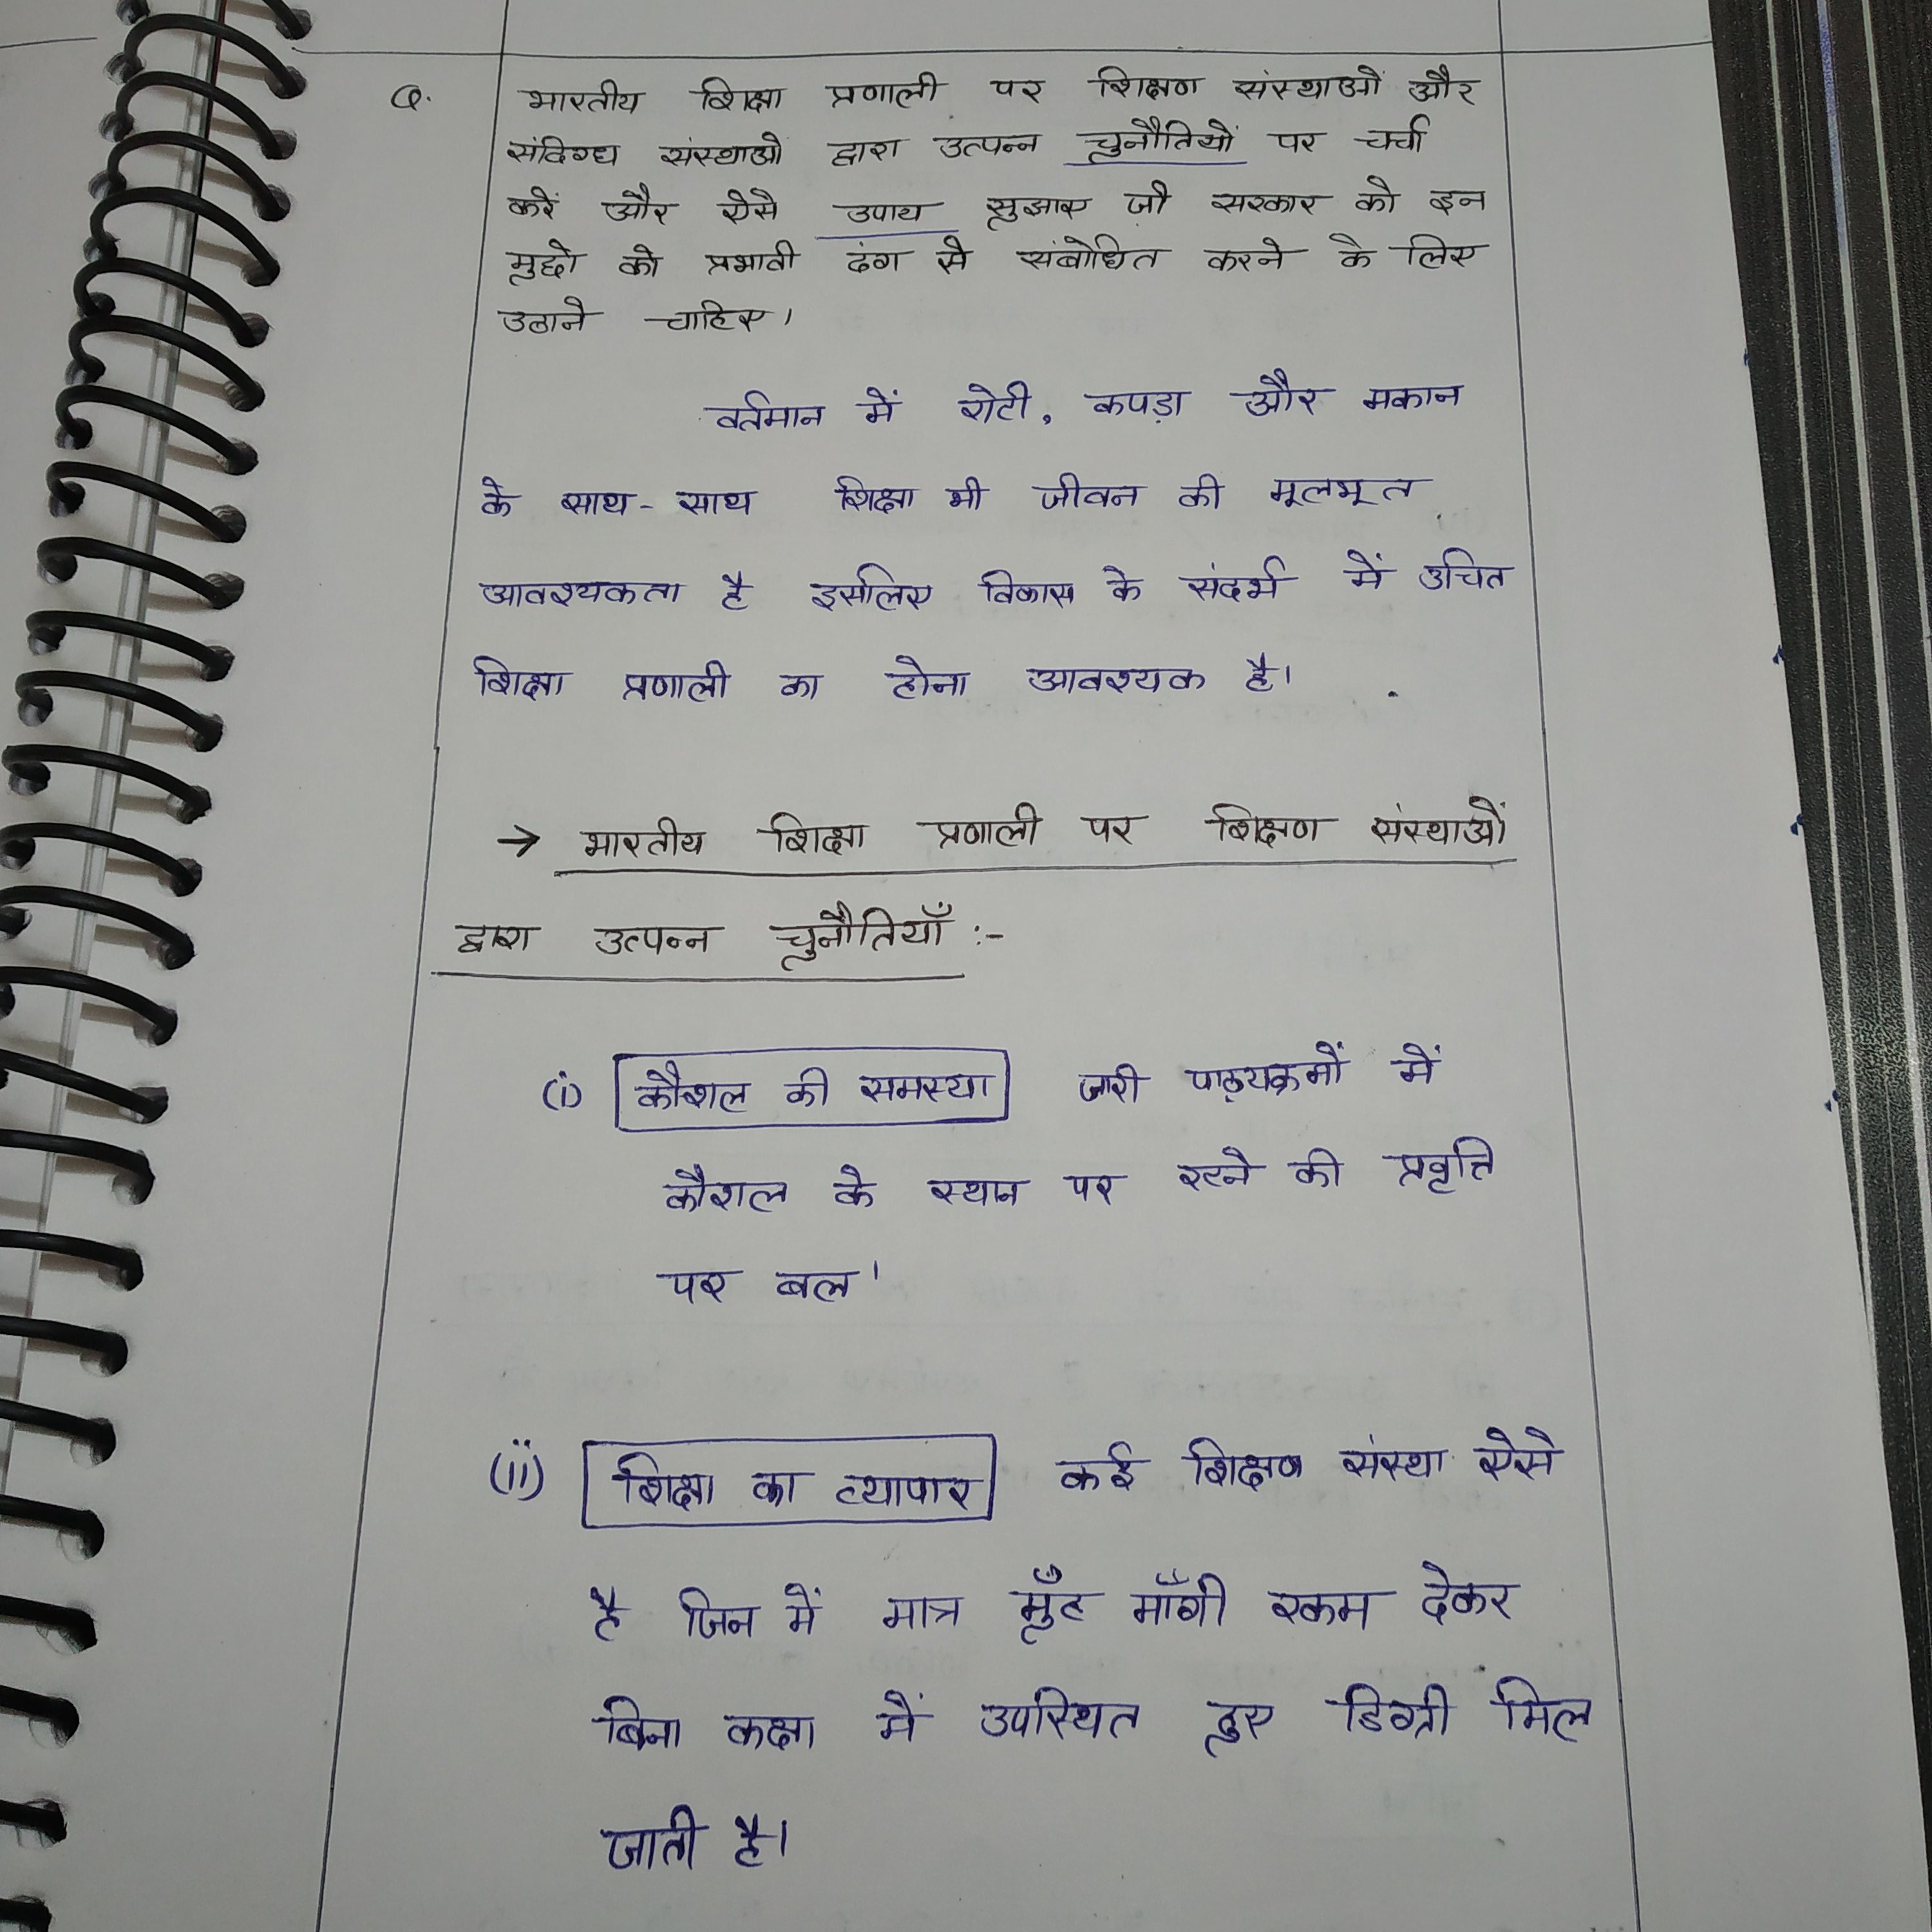 Q. भारतीय शिक्षा प्रणाली पर शिक्षण संस्थाओं और
संदिग्ध संस्थाओं द्वारा उत्पन्न चुनौतियों पर चर्चा
करें और ऐसे उपाय सुझाए जो सरकार को इन
मुद्दो को प्रभावी ढंग से संबोधित करने के लिए
उठाने चाहिए।
वर्तमान में रोटी, कपड़ा और मकान
के साथ-साथ शिक्षा भी जीवन की मूलभूत
आवश्यकता है इसलिए विकास के संदर्भ में उचित
शिक्षा प्रणाली का होना आवश्यक है।
→ भारतीय शिक्षा प्रणाली पर शिक्षण संस्थाओं
द्वारा उत्पन्न चुनौतियाँ :-
(i) कौशल की समस्या जारी पाठ्यक्रमों में
कौशल के स्थान पर रटने की प्रवृत्ति
पर बल।
(ii) शिक्षा का व्यापार कई शिक्षण संस्था ऐसे
है जिन में मात्र मुँह माँगी रकम देकर
बिना कक्षा में उपस्थित हुए डिग्री मिल
जाती है।